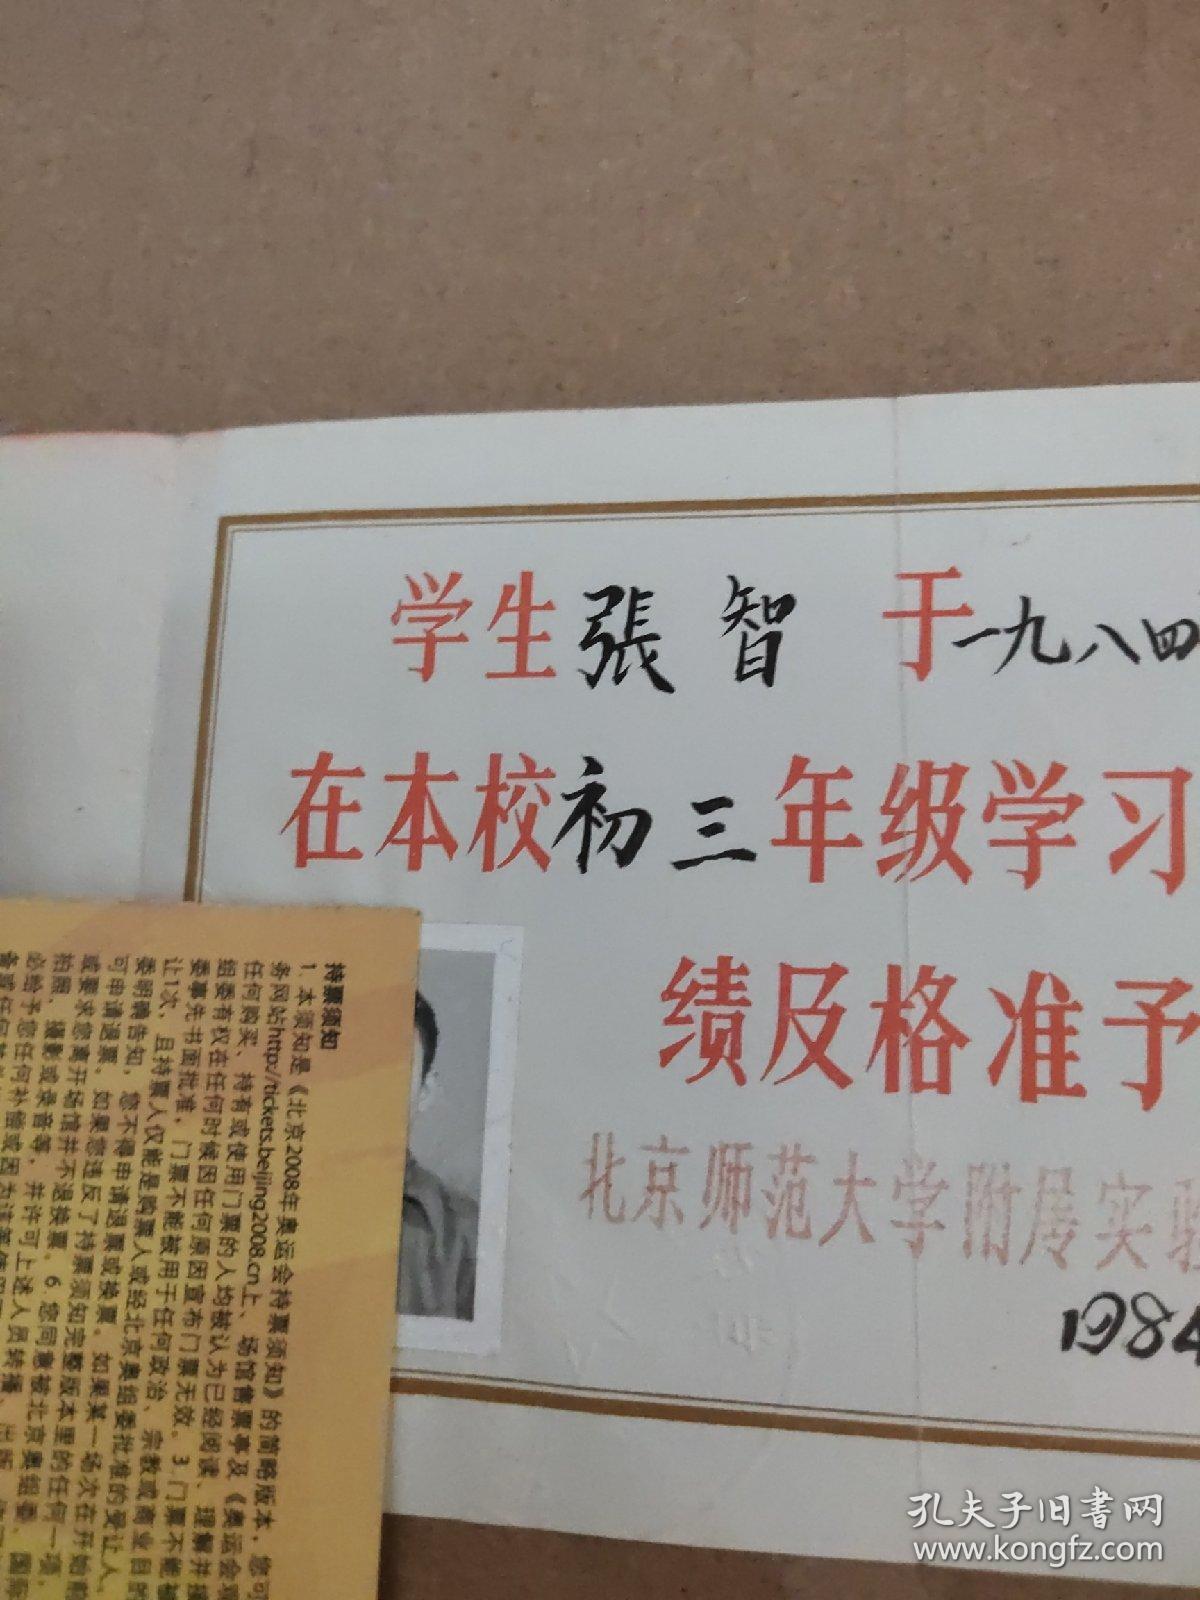 学生張智 于一九八四
在本校初三年级学习
绩及格准予
北京师范大学附属实验
1984
持票须知
1.本须知是《北京2008年奥运会持票须知》的简略版本，您可
务网站http://tickets.beijing2008.cn上、场馆售票亭及《奥运会观
任何购买、持有或使用门票的人均被认为已经阅读、理解并接
组委有权在任何时候因任何原因宣布门票无效。3.门票不能被
委事先书面批准，门票不能被用于任何政治、宗教或商业目的
让1次，且持票人仅能是购票人或经北京奥组委批准的受让人。
委明确告知，您不得申请退票或换票。如果某一场次在开始前
可申请退票。如果您违反了持票须知完整版本里的任何一项，
或要求您离开场馆并不退换票。6.您同意被北京奥组委、国际
拍照、摄影或录音等，并许可上述人员转播、出版
必给予您任何补偿或因
孔夫子旧书网
www.kongfz.com